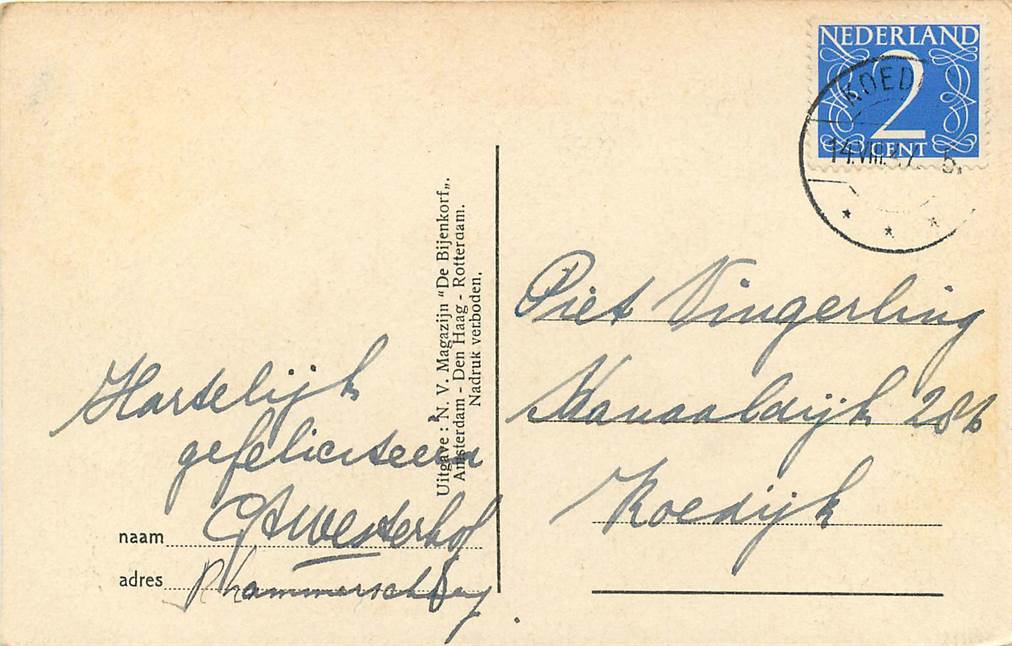 NEDERLAND
2
CENT
KOED
14.VIII.
Uitgave: N. V. Magazijn "De Bijenkorf„.
Amsterdam - Den Haag - Rotterdam.
Nadruk verboden.
Hartelijk
gefeliciteerd
naam GAWesterhof
adres
Piet Vingerling
Kanaaldijk
Koedijk